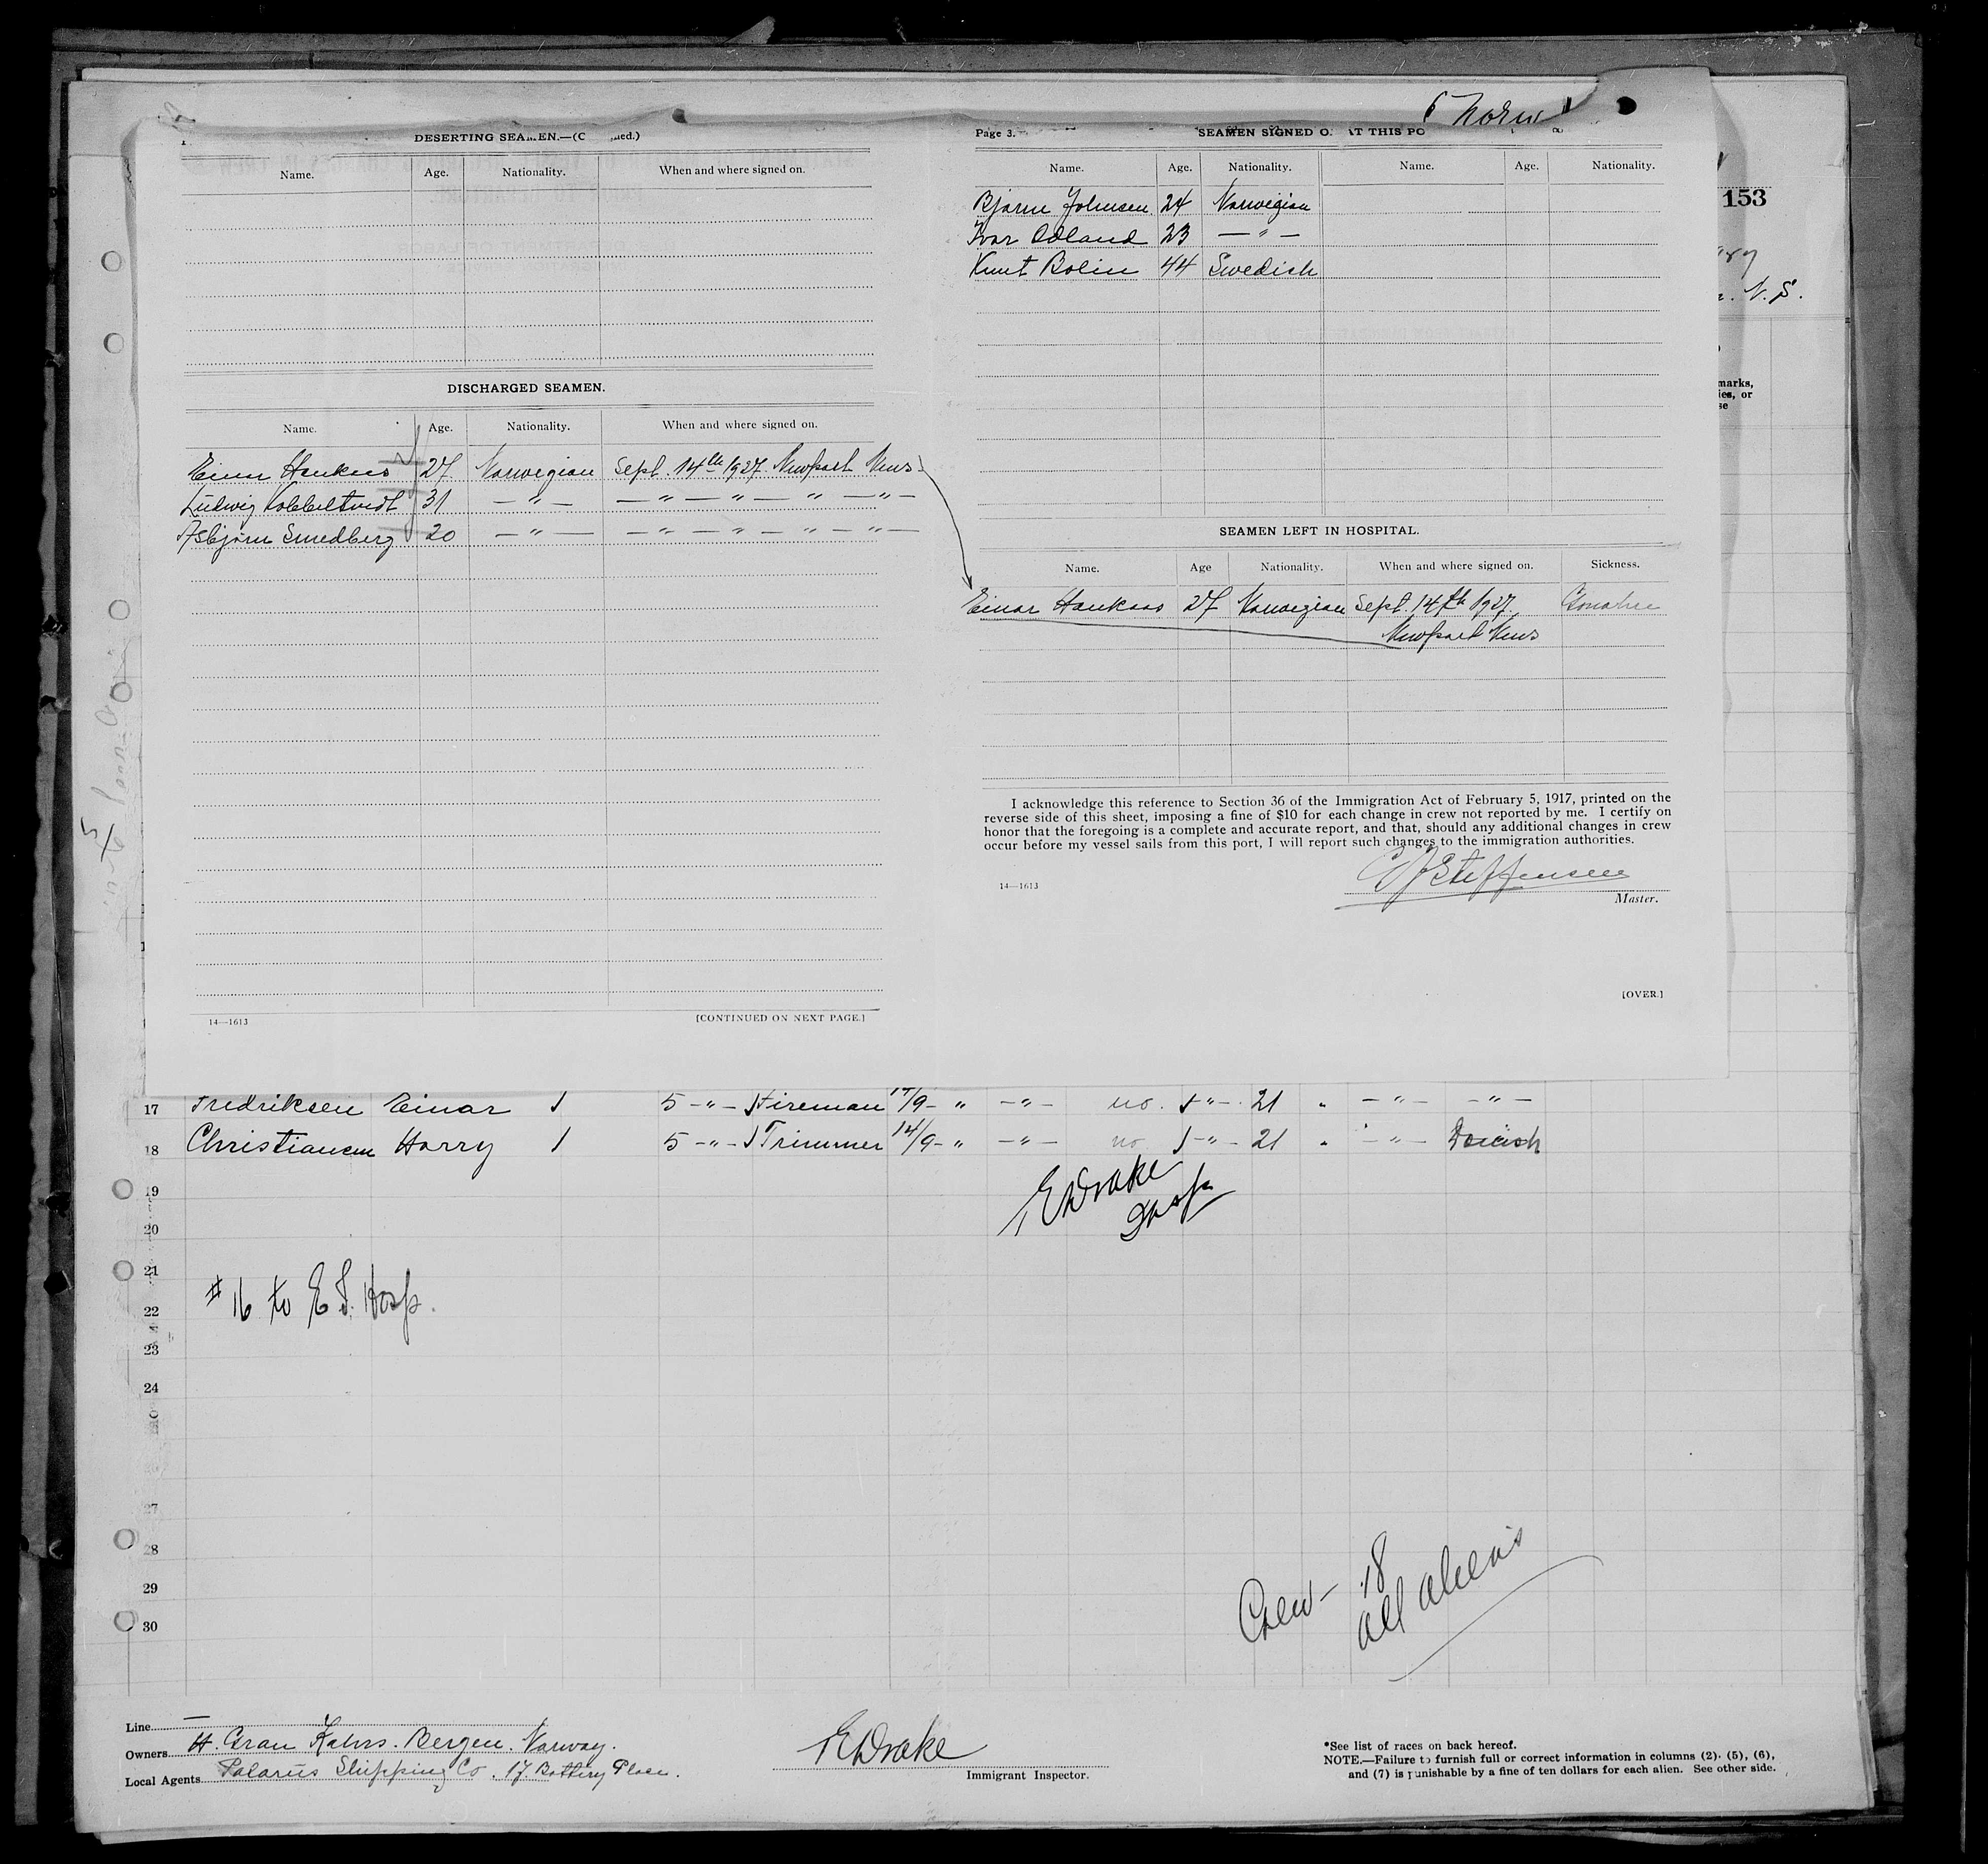 6 Norw
DESERTING SEAMEN.—(C ued.)
Name. Age. Nationality. When and where signed on.
DISCHARGED SEAMEN.
Name. Age. Nationality. When and where signed on.
Einar Haukaas 27 Norwegian Sept. 14th 1927. Newport News
Ludwig 31 — " — — " — " — " — " —
Asbjørn Smedberg 20 — " — — " — " — " — " —
14—1613 [CONTINUED ON NEXT PAGE.]
Page 3. SEAMEN SIGNED O AT THIS PO
Name. Age. Nationality. Name. Age. Nationality.
Bjarne Johnsen 24 Norwegian
Ivar Odland 23 — " —
Knut Bolin 44 Swedish
SEAMEN LEFT IN HOSPITAL.
Name. Age Nationality. When and where signed on. Sickness.
Einar Haukaas 27 Norwegian Sept. 14th 1927.
Newport News
I acknowledge this reference to Section 36 of the Immigration Act of February 5, 1917, printed on the
reverse side of this sheet, imposing a fine of $10 for each change in crew not reported by me. I certify on
honor that the foregoing is a complete and accurate report, and that, should any additional changes in crew
occur before my vessel sails from this port, I will report such changes to the immigration authorities.
Steffensen
14—1613 Master.
[OVER.]
153
N. S.
marks,
ies, or
se
17 Fredriksen Einar 1 5 - " - Fireman /9 - " - " - no. - " - 21 " - " - - " -
18 Christiansen Harry 1 5 - " - Trimmer 14/9 - " - " - no - " - 21 " - " - Danish
19
EDrake
Insp
20
21
#16 to E. I. Hosp.
22
23
24
27
28
29
30
Crew - 18
all aliens
Line —
Owners H. Gran Kahrs. Bergen. Norway.
Local Agents Polarus Shipping Co. 17. Battery Place.
EDrake
Immigrant Inspector.
*See list of races on back hereof.
NOTE.—Failure to furnish full or correct information in columns (2), (5), (6),
and (7) is punishable by a fine of ten dollars for each alien. See other side.